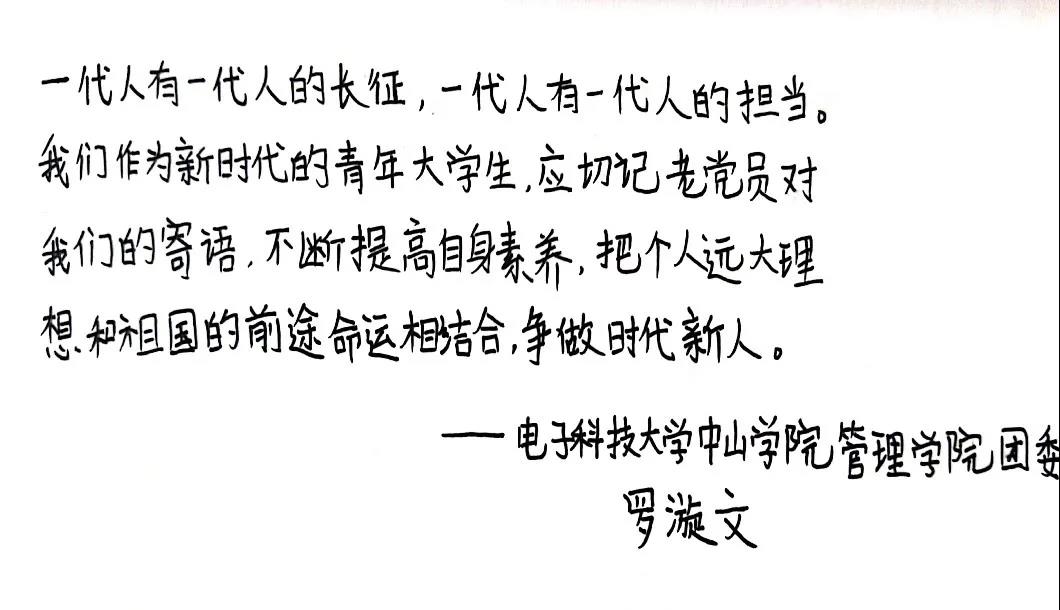 一代人有一代人的长征,一代人有一代人的担当。
我们作为新时代的青年大学生,应切记老党员对
我们的寄语,不断提高自身素养,把个人远大理
想和祖国的前途命运相结合,争做时代新人。
——电子科技大学中山学院管理学院团委
罗漩文